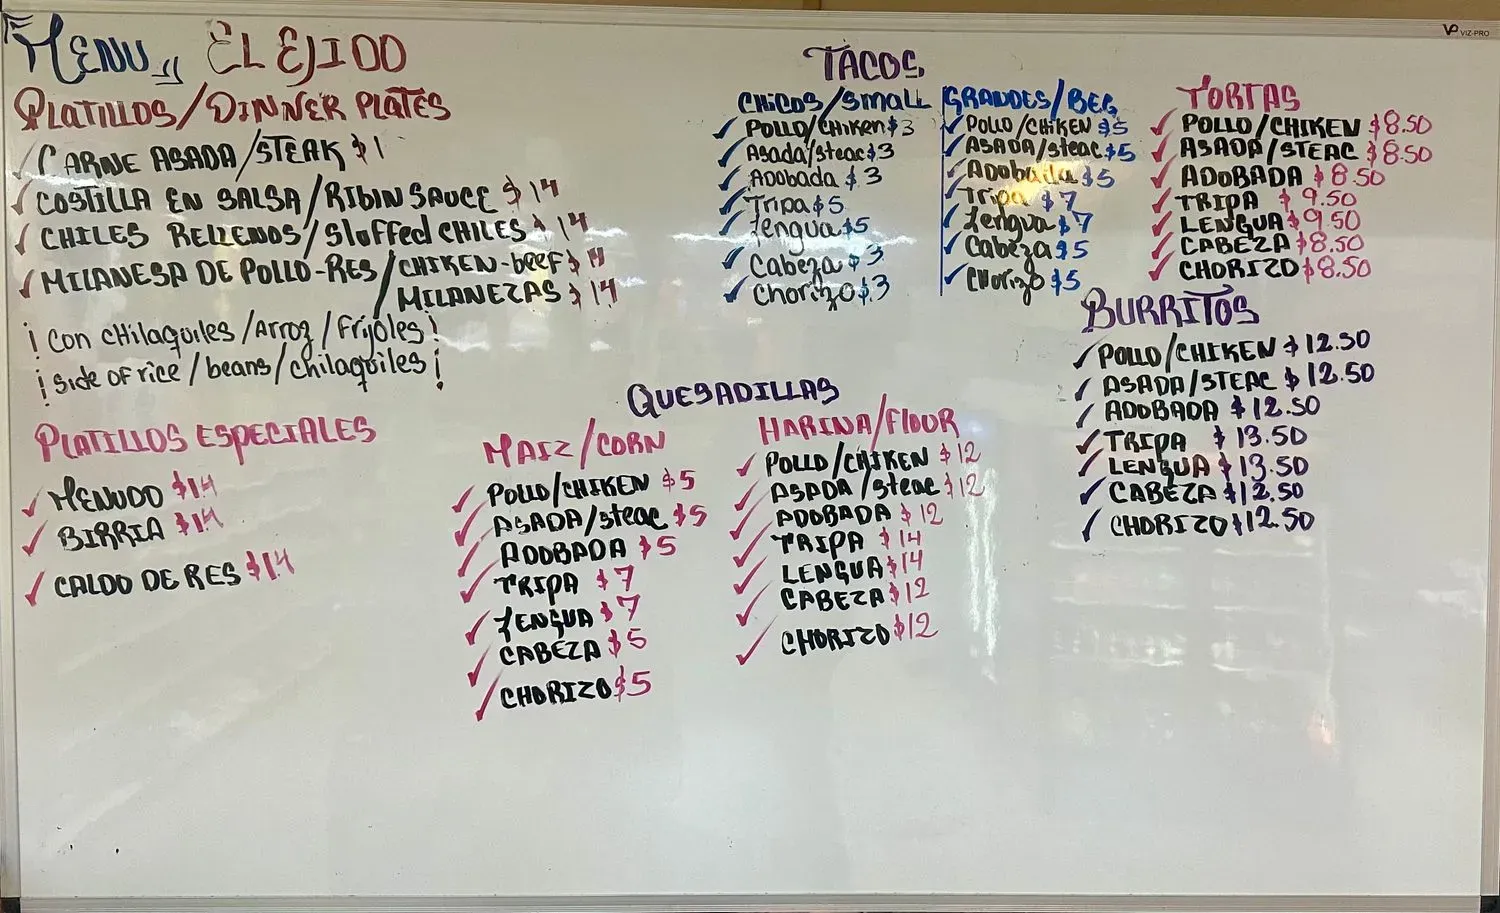 MENU EL EJIDO
PLATILLOS/DINNER PLATES
CARNE ASADA/STEAK $1
COSTILLA EN SALSA/RIBIN SAUCE $14
CHILES RELLENOS/Stuffed CHILES $14
MILANESA DE POLLO-RES/CHIKEN-beef $14
MILANEZAS $14
¡Con CHilaquiles/Arroz/Frijoles!
¡side of rice/beans/chilaquiles!
PLATILLOS ESPECIALES
MENUDO $14
BIRRIA $14
CALDO DE RES $14
QUESADILLAS
MAIZ/CORN
POLLO/CHIKEN $5
ASADA/steac $5
ADOBADA $5
TRIPA $7
LENGUA $7
CABEZA $5
CHORIZO $5
HARINA/FlOUR
POLLO/CHIKEN $12
ASADA/Steac $12
ADOBADA $12
TRIPA $14
LENGUA $14
CABEZA $12
CHORIZO $12
TACOS
CHICOS/SMALL
POLLO/CHIKEN $3
Asada/steac $3
Adobada $3
Tripa $5
Lengua $5
Cabeza $3
Chorizo $3
GRANDES/BEG
POLLO/CHIKEN $5
ASADA/Steac $5
Adobada $5
Tripa $7
Lengua $7
Cabeza $5
CHorizo $5
TORTAS
POLLO/CHIKEN $8.50
ASADA/STEAC $8.50
ADOBADA $8.50
TRIPA $9.50
LENGUA $9.50
CABEZA $8.50
CHORIZO $8.50
BURRITOS
POLLO/CHIKEN $12.50
ASADA/STEAC $12.50
ADOBADA $12.50
TRIPA $13.50
LENGUA $13.50
CABEZA $12.50
CHORIZO $12.50
VP VIZ-PRO